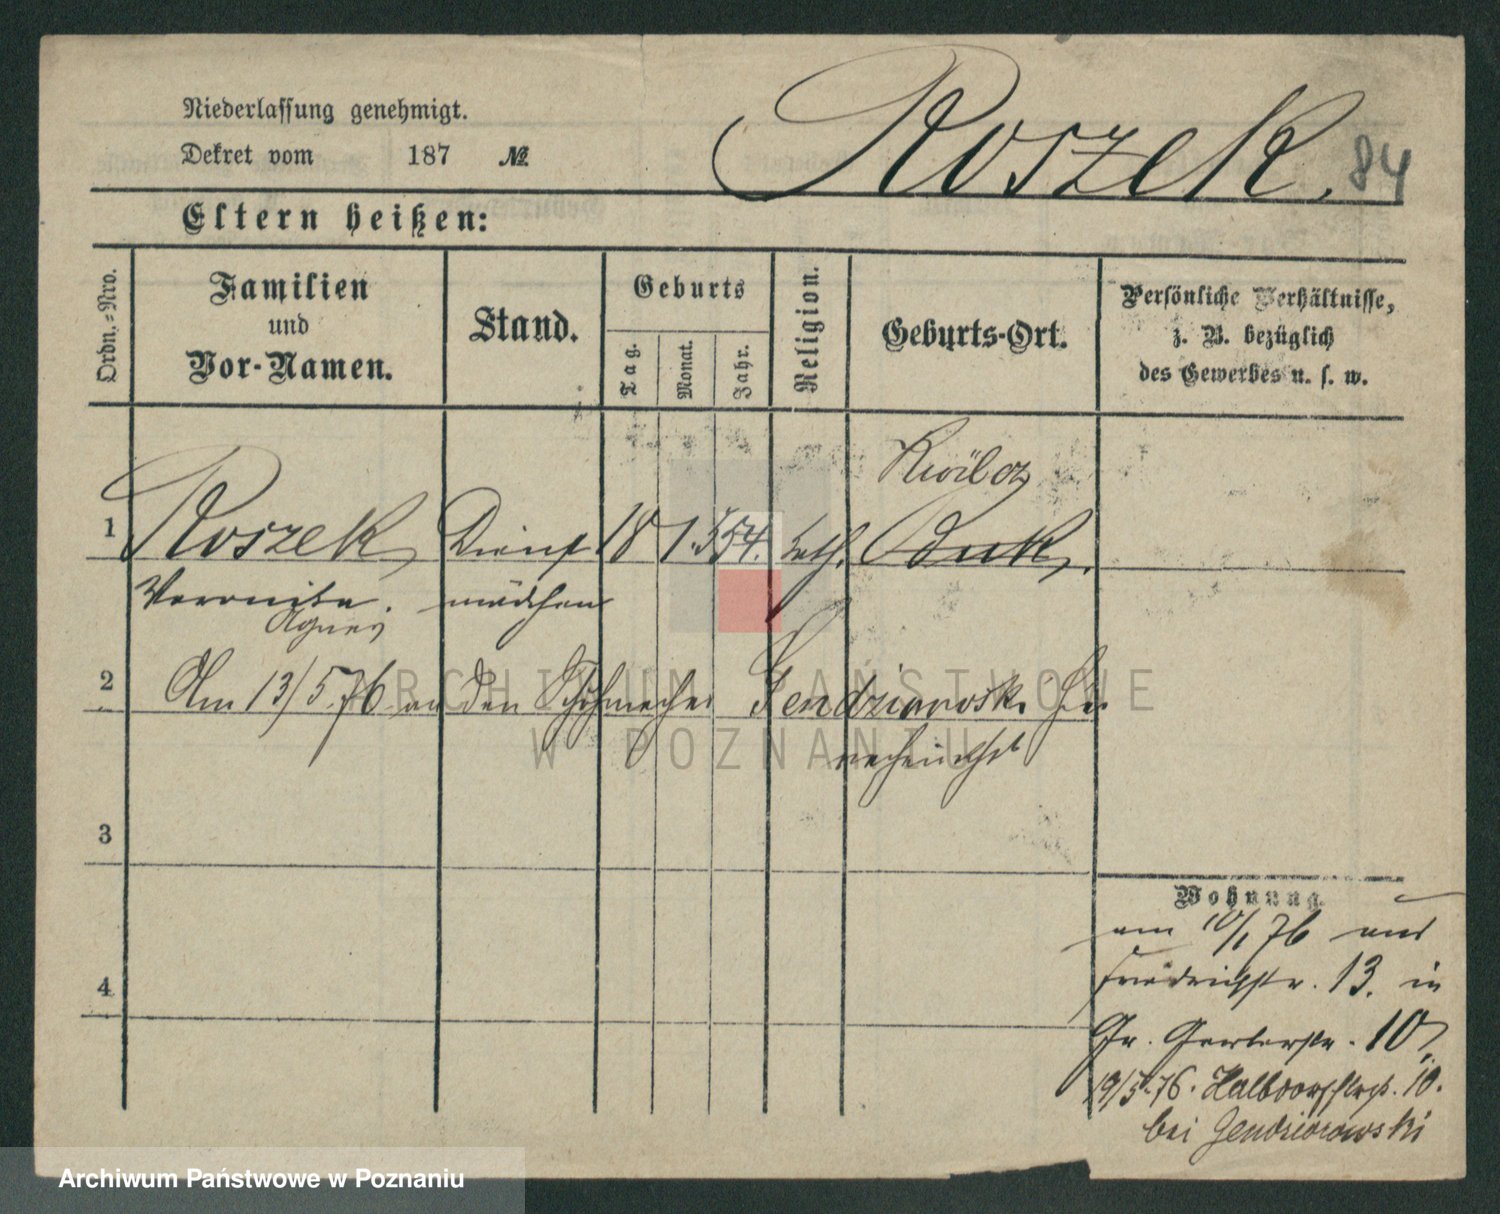 Niederlassung genehmigt.
Dekret vom 187 №
Roszek. 84
Eltern heißen:
Ordn.-Nro.
Familien
und
Vor-Namen.
Stand.
Geburts
Tag.
Monat.
Jahr.
Religion.
Geburts-Ort.
Persönliche Verhältnisse,
z. B. bezüglich
des Gewerbes u. s. w.
Kwilcz
1 Roszek Dienst 18 1. 54. kath. Buk.
Veronika. mädchen
Agnes
2 Am 13/5 76 an den Schuhmacher
3
Wohnung.
am 10/1 76 aus
Friedrichstr. 13. in
4
Gr. Gerberstr. 10
19/5 76. Halbdorfstr. 10.
bei Gendziorowski
ARCHIWUM PAŃSTWOWE
W POZNANIU
Archiwum Państwowe w Poznaniu